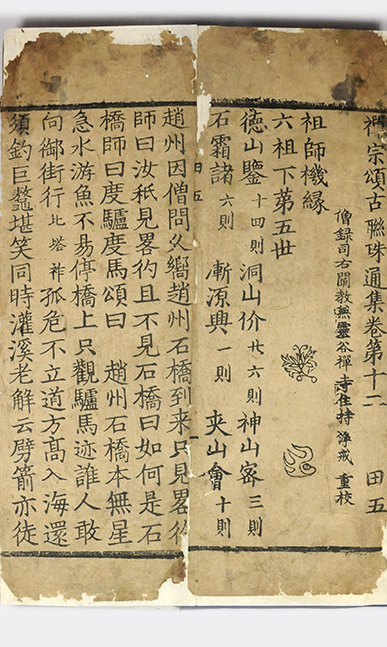 禪宗頌古聯珠通集卷第十二 田五
僧録司右闡教兼靈谷禪寺住持淨戒重校
祖師機緣
六祖下第五世
德山鑒十四則 洞山价廿六則 神山密三則
石霜諸六則 漸源興一則 夾山會十則
田五 一
趙州因僧問久嚮趙州石橋到来只見畧彴
師曰汝秖見畧彴且不見石橋曰如何是石
橋師曰度驢度馬頌曰 趙州石橋本無星
急水游魚不易停橋上只觀驢馬迹誰人敢
向御街行 比塔祚 孤危不立道方髙入海還
須釣巨鼇堪笑同時灌溪老解云劈箭亦徒